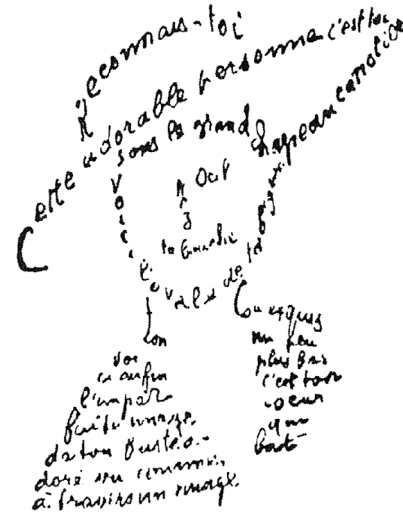 Reconnais-toi
Cette adorable personne c'est toi
Sous le grand chapeau canotier
Oeil
Nez
ta bouche
Voici l'ovale de ta figure
Ton
Cou exquis
Voi
ci enfin
l'impar
faite image
de ton buste a
doré vu comme
à travers un nuage
un peu
plus bas
c'est ton
coeur
qui
bat